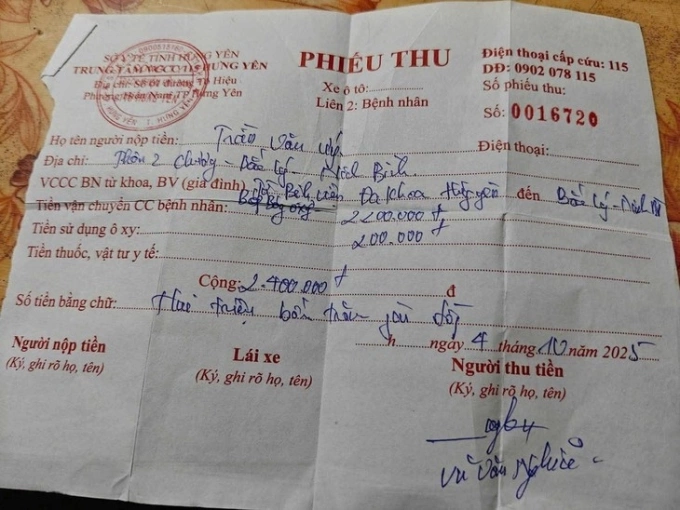 SỞ Y TẾ TỈNH HƯNG YÊN
TRUNG TÂM VCCC 115 HƯNG YÊN
Địa chỉ: Số 01 đường Tô Hiệu
Phường Hiến Nam TP Hưng Yên
PHIẾU THU
Xe ô tô:
Liên 2: Bệnh nhân
Điện thoại cấp cứu: 115
DĐ: 0902 078 115
Số phiếu thu:
Số: 0016720
Họ tên người nộp tiền: Trần Văn Điện thoại:
Địa chỉ: Thôn 2 - Bắc Lý - Ninh Bình
VCCC BN từ khoa, BV (gia đình) Bệnh viện Đa Khoa Hưng yên đến Bắc Lý - Ninh
Tiền vận chuyển CC bệnh nhân: 2200.000 đ
Tiền sử dụng ô xy: 200.000 đ
Tiền thuốc, vật tư y tế:
Cộng: 2.400.000 đ đ
Số tiền bằng chữ: Hai triệu bốn trăm đồng
h ngày 4 tháng 10 năm 2025
Người nộp tiền
(Ký, ghi rõ họ, tên)
Lái xe
(Ký, ghi rõ họ, tên)
Người thu tiền
(Ký, ghi rõ họ, tên)
Vũ Văn